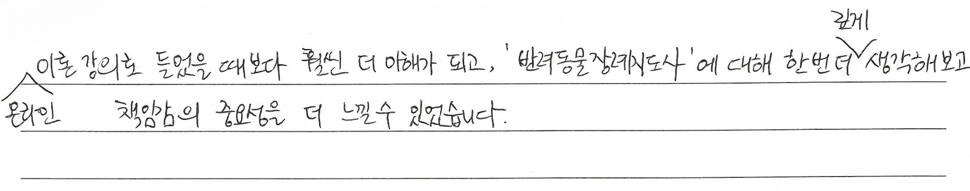 깊게
이론 강의로 들었을 때보다 훨씬 더 이해가 되고, '반려동물장례지도사'에 대해 한번 더 생각해보고
온라인 책임감의 중요성을 더 느낄 수 있었습니다.